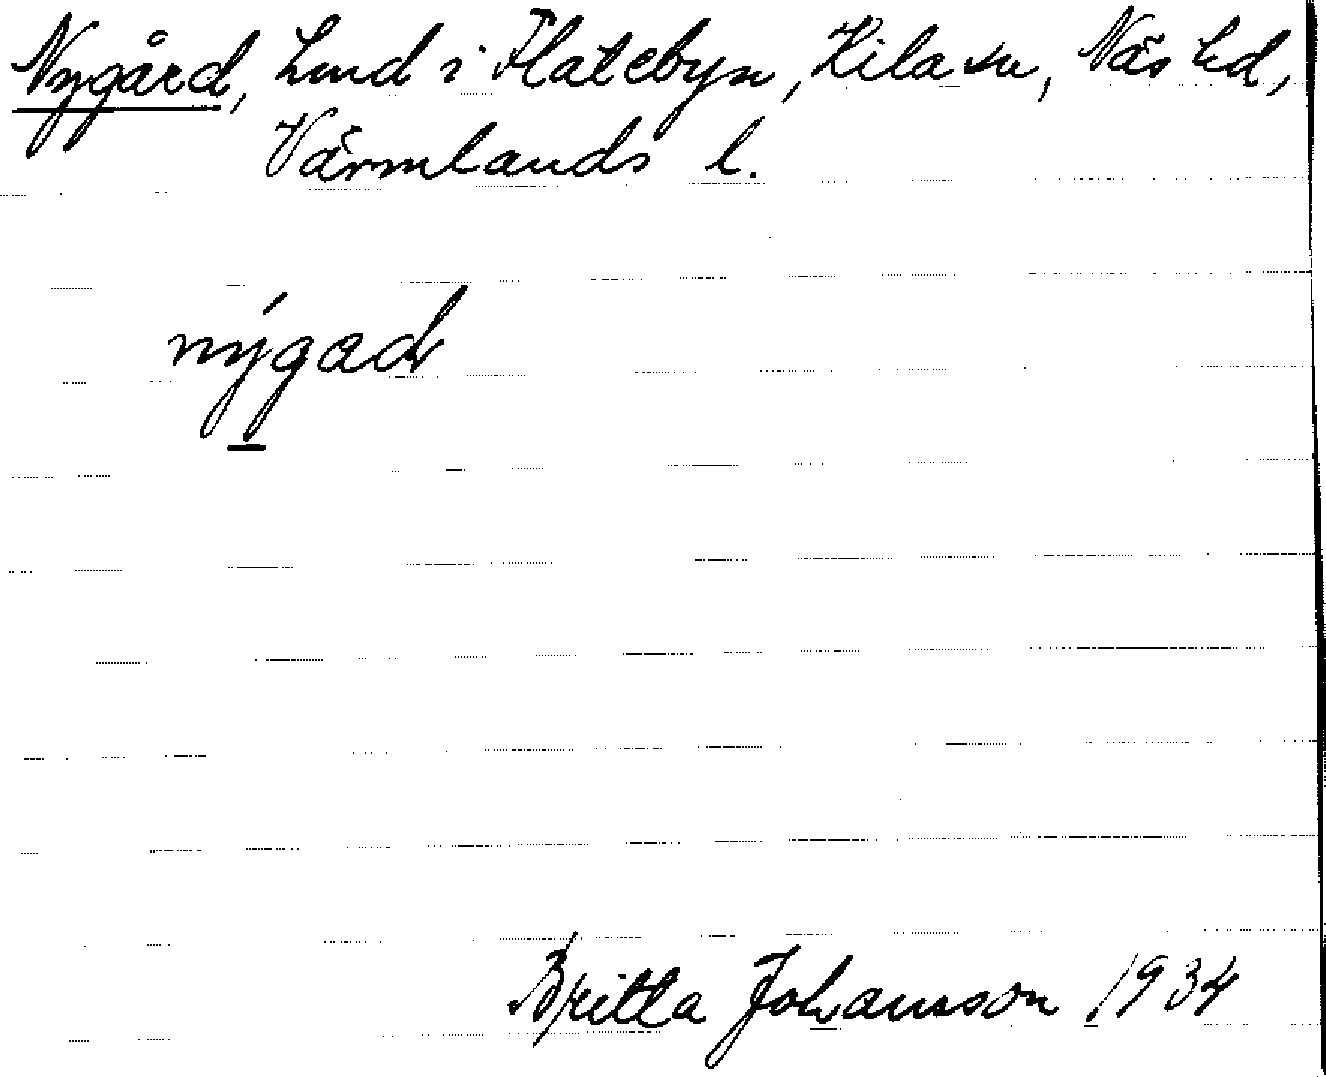 Nygård, Lund i Flatebyn, Kila sn, Näs hd,
Värmlands l.
nýgad
Britta Johansson 1934